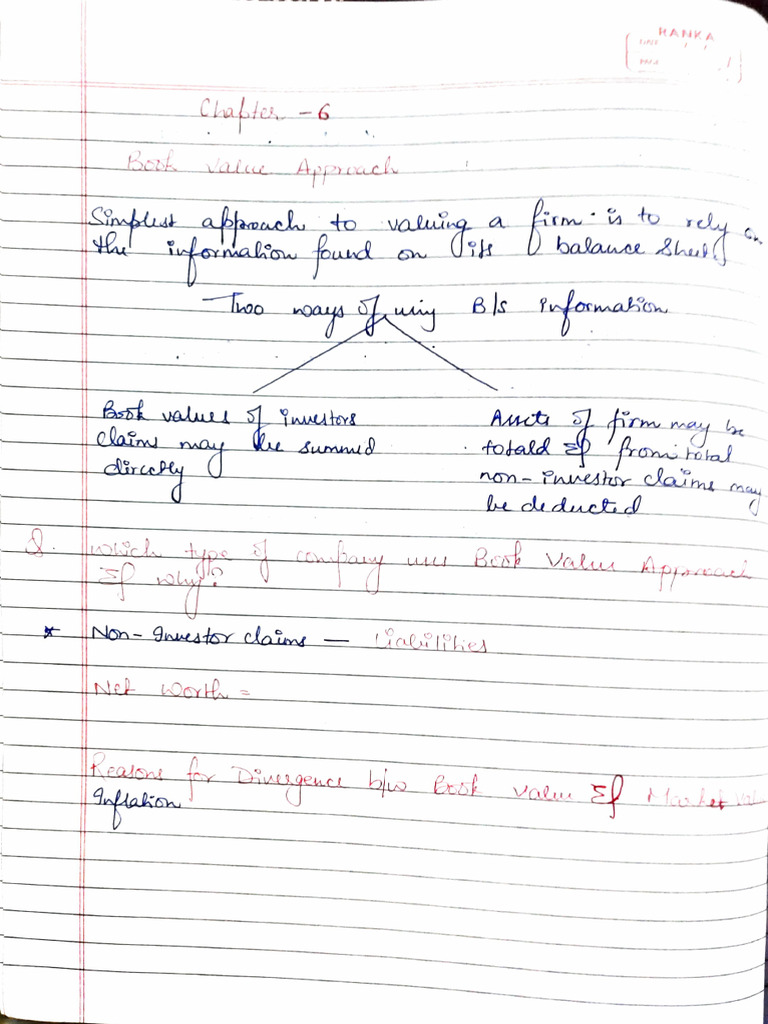 RANKA
Chapter - 6
Book Value Approach
Simplest approach to valuing a firm is to rely on
the information found on its balance sheet
Two ways of using B/s information
Book values of investors
claims may be summed
directly
Assets of firm may be
totald & from total
non-investor claims may
be deducted
Q. which type of company uses Book Value Approach
& why?
* Non-Investor claims — Liabilities
Net Worth =
Reasons for Divergence b/w Book value & Market Val
Inflation